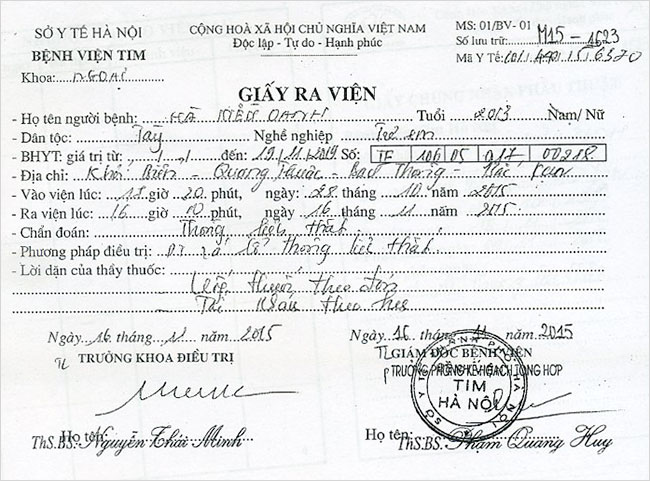 SỞ Y TẾ HÀ NỘI
BỆNH VIỆN TIM
Khoa: NGOẠI
CỘNG HOÀ XÃ HỘI CHỦ NGHĨA VIỆT NAM
Độc lập - Tự do - Hạnh phúc
MS: 01/BV- 01
Số lưu trữ: M15 - 1623
Mã Y Tế:
GIẤY RA VIỆN
- Họ tên người bệnh: HÀ OANH Tuổi 2013 Nam/ Nữ
- Dân tộc: Tày Nghề nghiệp Trẻ em
- BHYT: giá trị từ: đến: 19/11/2019 Số: TE 106 05 017 00218
- Địa chỉ: Khôi - Quang Thuận - Bạch Thông - Bắc Kạn
- Vào viện lúc: 18 giờ 20 phút, ngày: 28 tháng 10 năm 2015
- Ra viện lúc: 16 giờ 10 phút, ngày 16 tháng 11 năm 2015
- Chẩn đoán: Thông liên thất
- Phương pháp điều trị: vá lỗ thông liên thất
- Lời dặn của thầy thuốc:
Uống thuốc theo đơn
Tái khám theo hẹn
Ngày 16 tháng 11 năm 2015
TL TRƯỞNG KHOA ĐIỀU TRỊ
Họ tên:
ThS.BS. Nguyễn Thái Minh
Ngày 16 tháng 11 năm 2015
TL GIÁM ĐỐC BỆNH VIỆN
TRƯỞNG PHÒNG KẾ HOẠCH TỔNG HỢP
BỆNH VIỆN
TIM
HÀ NỘI
Họ tên:
ThS.BS. Phạm Quang Huy